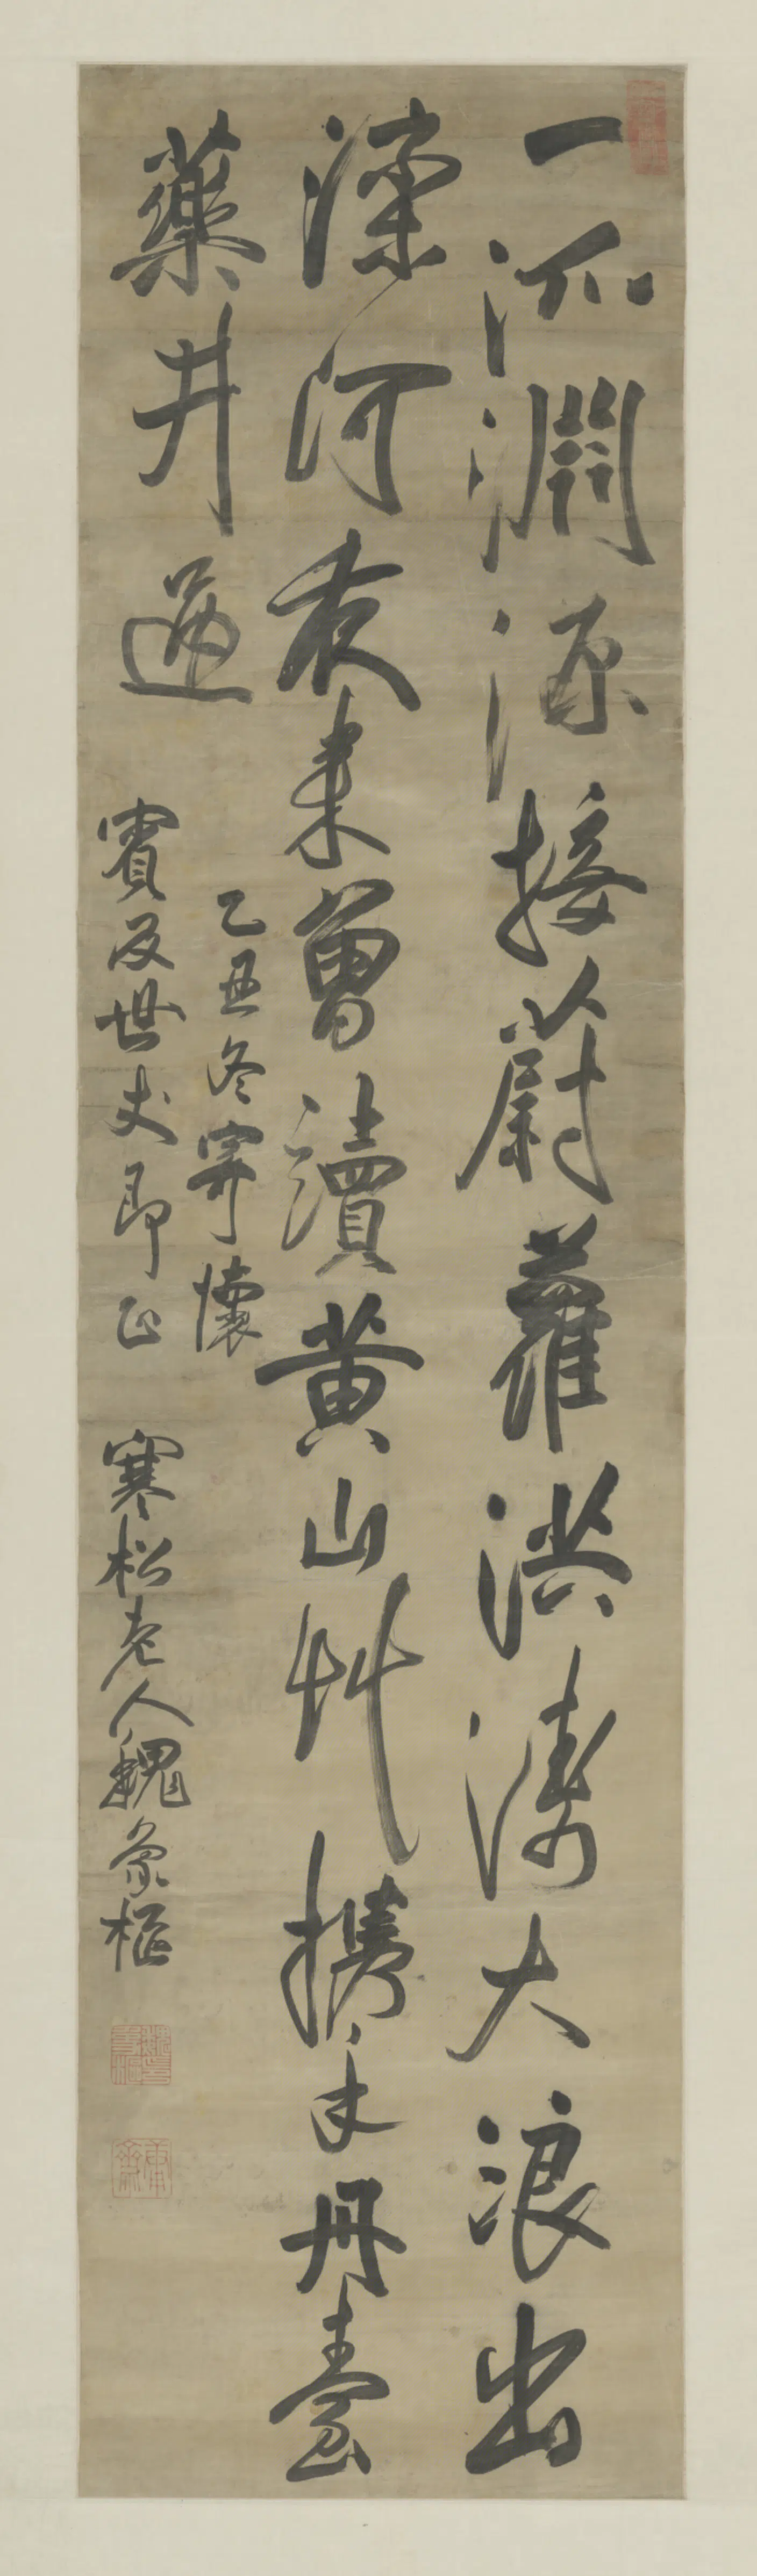 一派淵源接蔚蘿洪濤大浪出
濼河夜來曾讀黃山草攜手丹臺
藥井邊
乙丑冬寄懷
賓及世丈郎正
寒松老人魏象樞